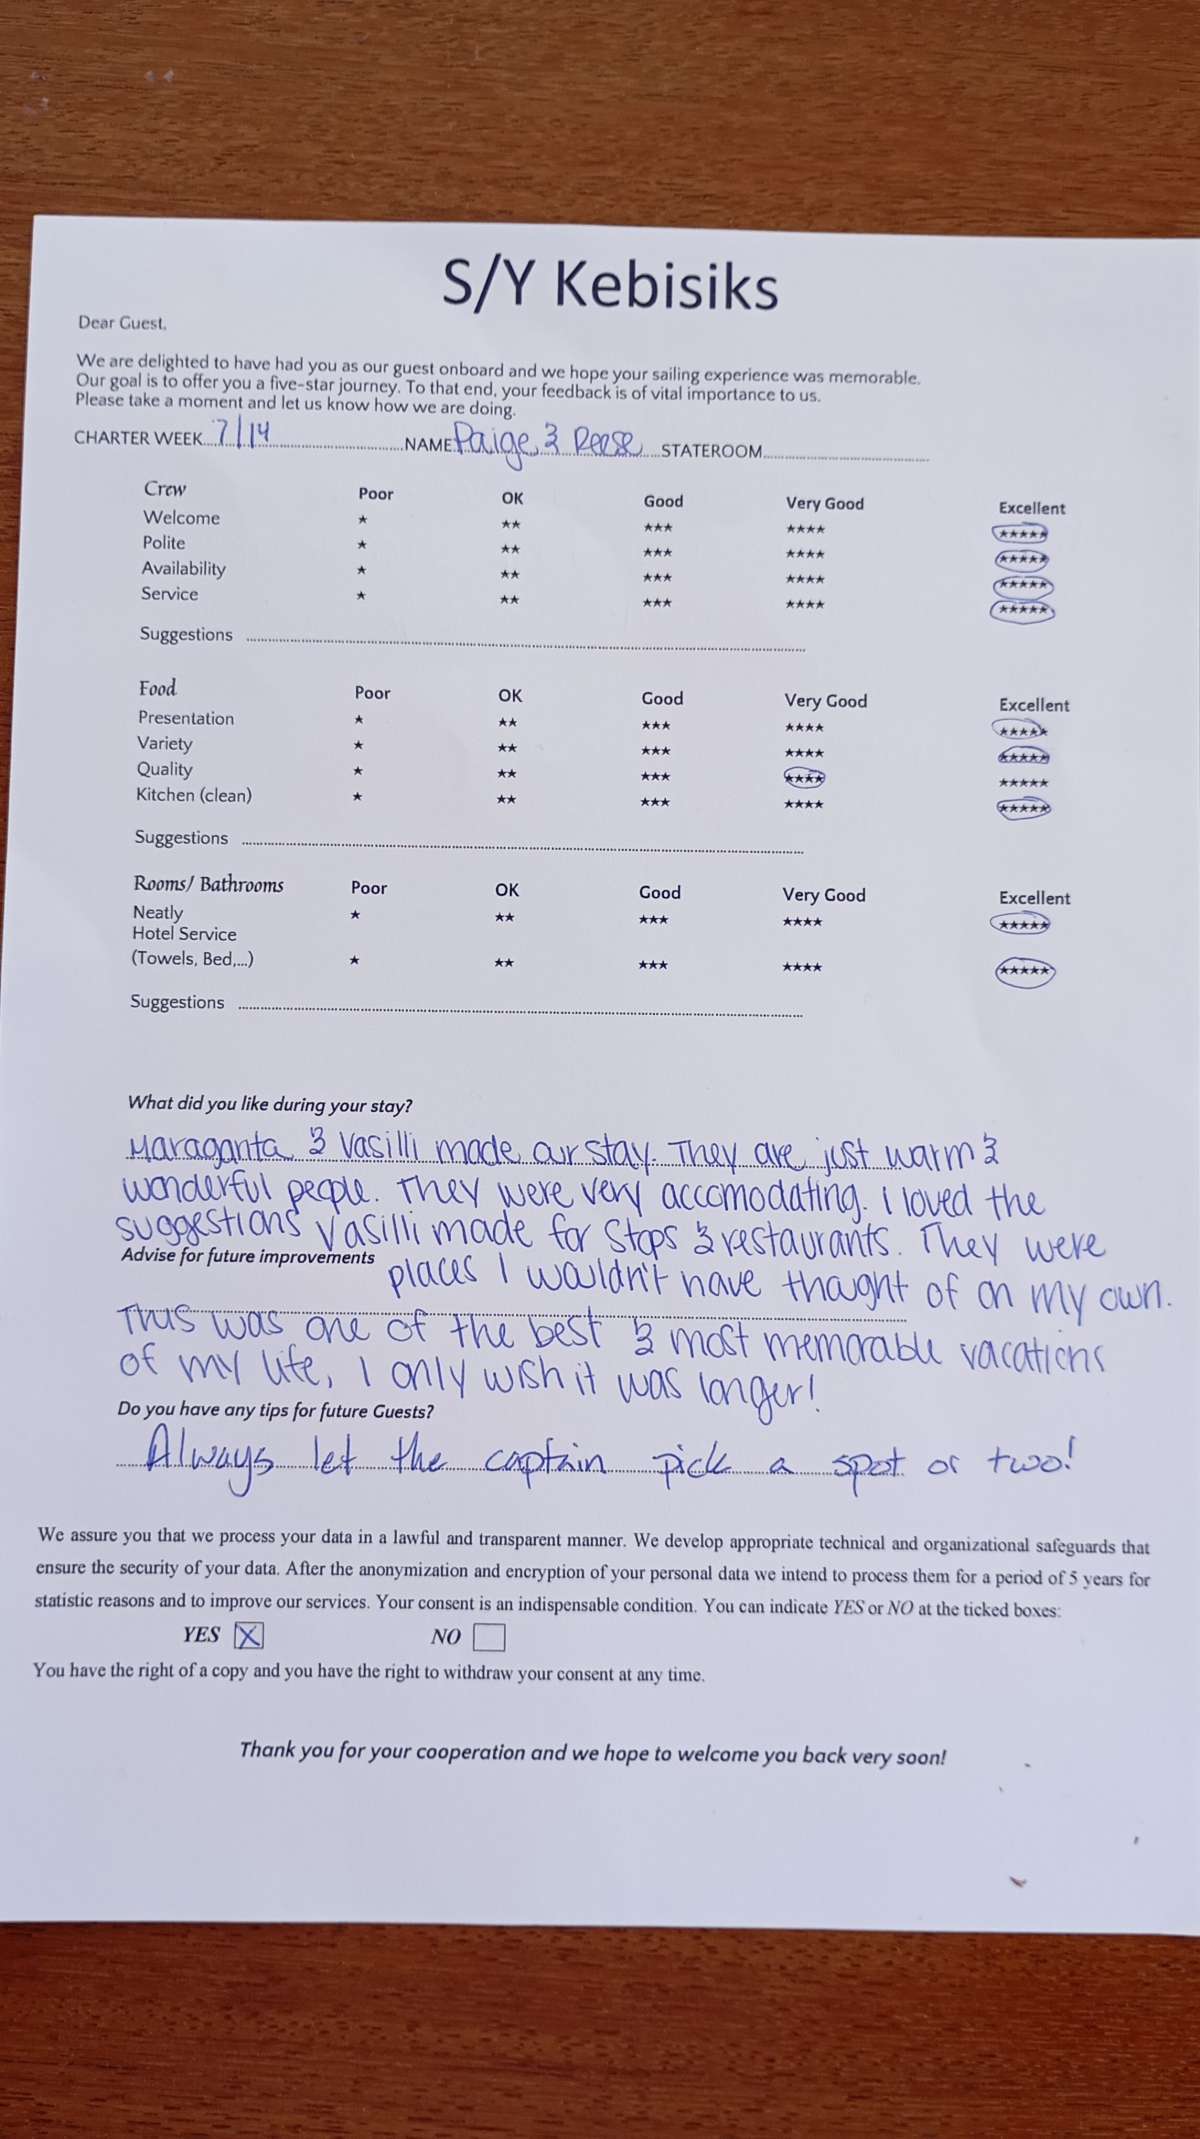 S/Y Kebisiks
Dear Guest,
We are delighted to have had you as our guest onboard and we hope your sailing experience was memorable.
Our goal is to offer you a five-star journey. To that end, your feedback is of vital importance to us.
Please take a moment and let us know how we are doing.
CHARTER WEEK 7/14 NAME Paige & Reese STATEROOM
Crew Poor OK Good Very Good Excellent
Welcome ★ ★★ ★★★ ★★★★ ★★★★★
Polite ★ ★★ ★★★ ★★★★ ★★★★★
Availability ★ ★★ ★★★ ★★★★ ★★★★★
Service ★ ★★ ★★★ ★★★★ ★★★★★
Suggestions
Food Poor OK Good Very Good Excellent
Presentation ★ ★★ ★★★ ★★★★ ★★★★★
Variety ★ ★★ ★★★ ★★★★ ★★★★★
Quality ★ ★★ ★★★ ★★★★ ★★★★★
Kitchen (clean) ★ ★★ ★★★ ★★★★ ★★★★★
Suggestions
Rooms/ Bathrooms Poor OK Good Very Good Excellent
Neatly ★ ★★ ★★★ ★★★★ ★★★★★
Hotel Service
(Towels, Bed,...) ★ ★★ ★★★ ★★★★ ★★★★★
Suggestions
What did you like during your stay?
Maraganta & Vasilli made our stay. They are just warm &
wonderful people. They were very accomodating. I loved the
suggestions Vasilli made for stops & restaurants. They were
Advise for future improvements
places I wouldn't have thought of on my own.
This was one of the best & most memorable vacations
of my life, I only wish it was longer!
Do you have any tips for future Guests?
Always let the captain pick a spot or two!
We assure you that we process your data in a lawful and transparent manner. We develop appropriate technical and organizational safeguards that
ensure the security of your data. After the anonymization and encryption of your personal data we intend to process them for a period of 5 years for
statistic reasons and to improve our services. Your consent is an indispensable condition. You can indicate YES or NO at the ticked boxes:
YES X NO
You have the right of a copy and you have the right to withdraw your consent at any time.
Thank you for your cooperation and we hope to welcome you back very soon!